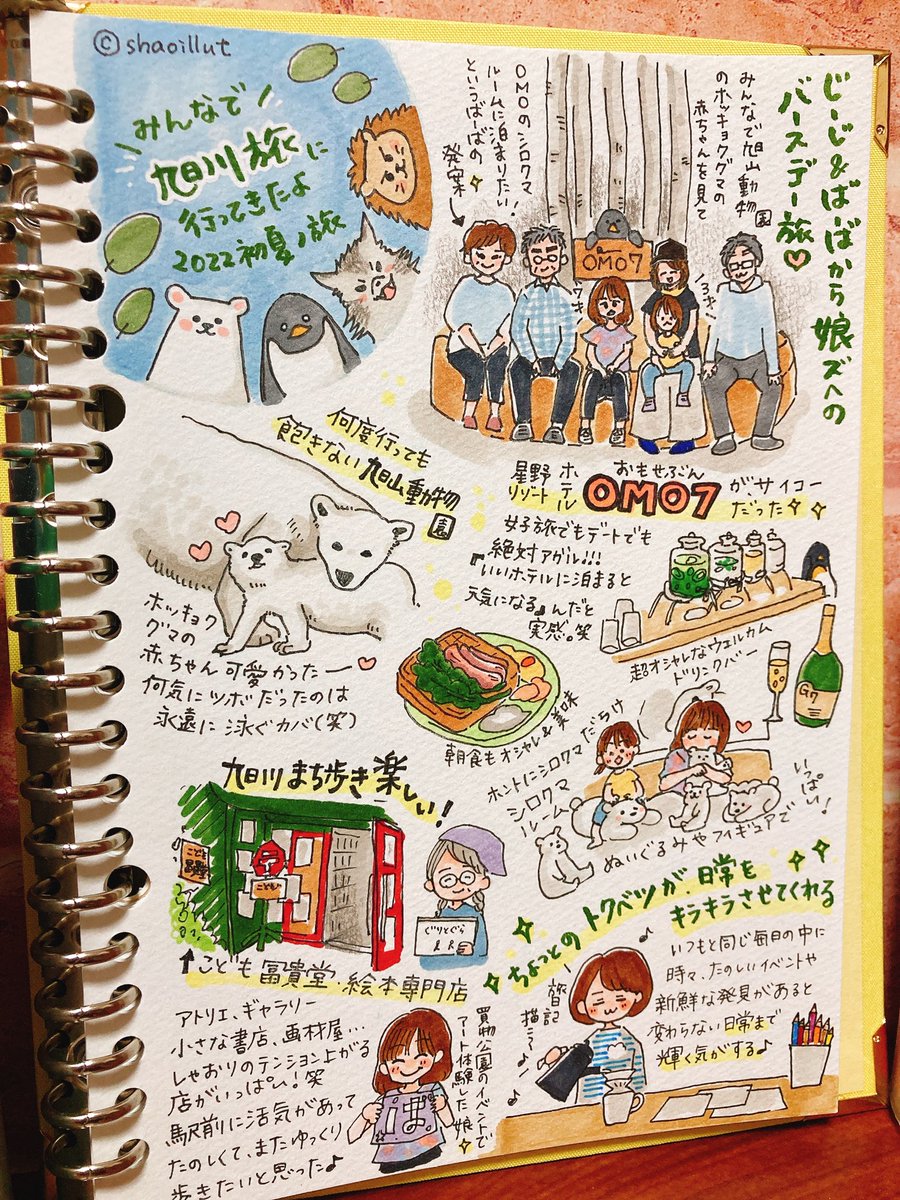 ©shaoillut
みんなで
旭川旅に
行ってきたよ
2022初夏ノ旅
じーじ&ばーばから娘ズへの
バースデー旅♡
みんなで旭山動物園
のホッキョクグマの
赤ちゃんを見て
OMOのシロクマ
ルームに泊まりたい!
というばーばの
発案
OMO7
何度行っても
飽きない旭山動物園
ホッキョク
グマの
赤ちゃん可愛かったー♡
何気にツボだったのは
永遠に泳ぐカバ(笑)
星野リゾート
ホテル
おもせぶん
OMO7がサイコー
だった
女子旅でもデートでも
絶対アガル!!!
『いいホテルに泊まると
元気になる』んだと
実感。笑
超オシャレなウェルカム
ドリンクバー
G7
朝食もオシャレ&美味
ホントにシロクマだらけ
シロクマ
ルーム
ぬいぐるみやフィギュアで
いっぱい!
旭川まち歩き楽しい!
こども
冨貴堂
こども
ぐりとぐら
↑こども冨貴堂・絵本専門店
アトリエ、ギャラリー
小さな書店、画材屋…
しゃおりのテンション上がる
店がいっぱい!笑
駅前に活気があって
たのしくて、またゆっくり
歩きたいと思った♪
買物公園のイベントで
アート体験した娘
ちょっとのトクベツが、日常を
キラキラさせてくれる
旅記
描こう♪
いつもと同じ毎日の中に
時々、たのしいイベントや
新鮮な発見があると
変わらない日常まで
輝く気がする♪